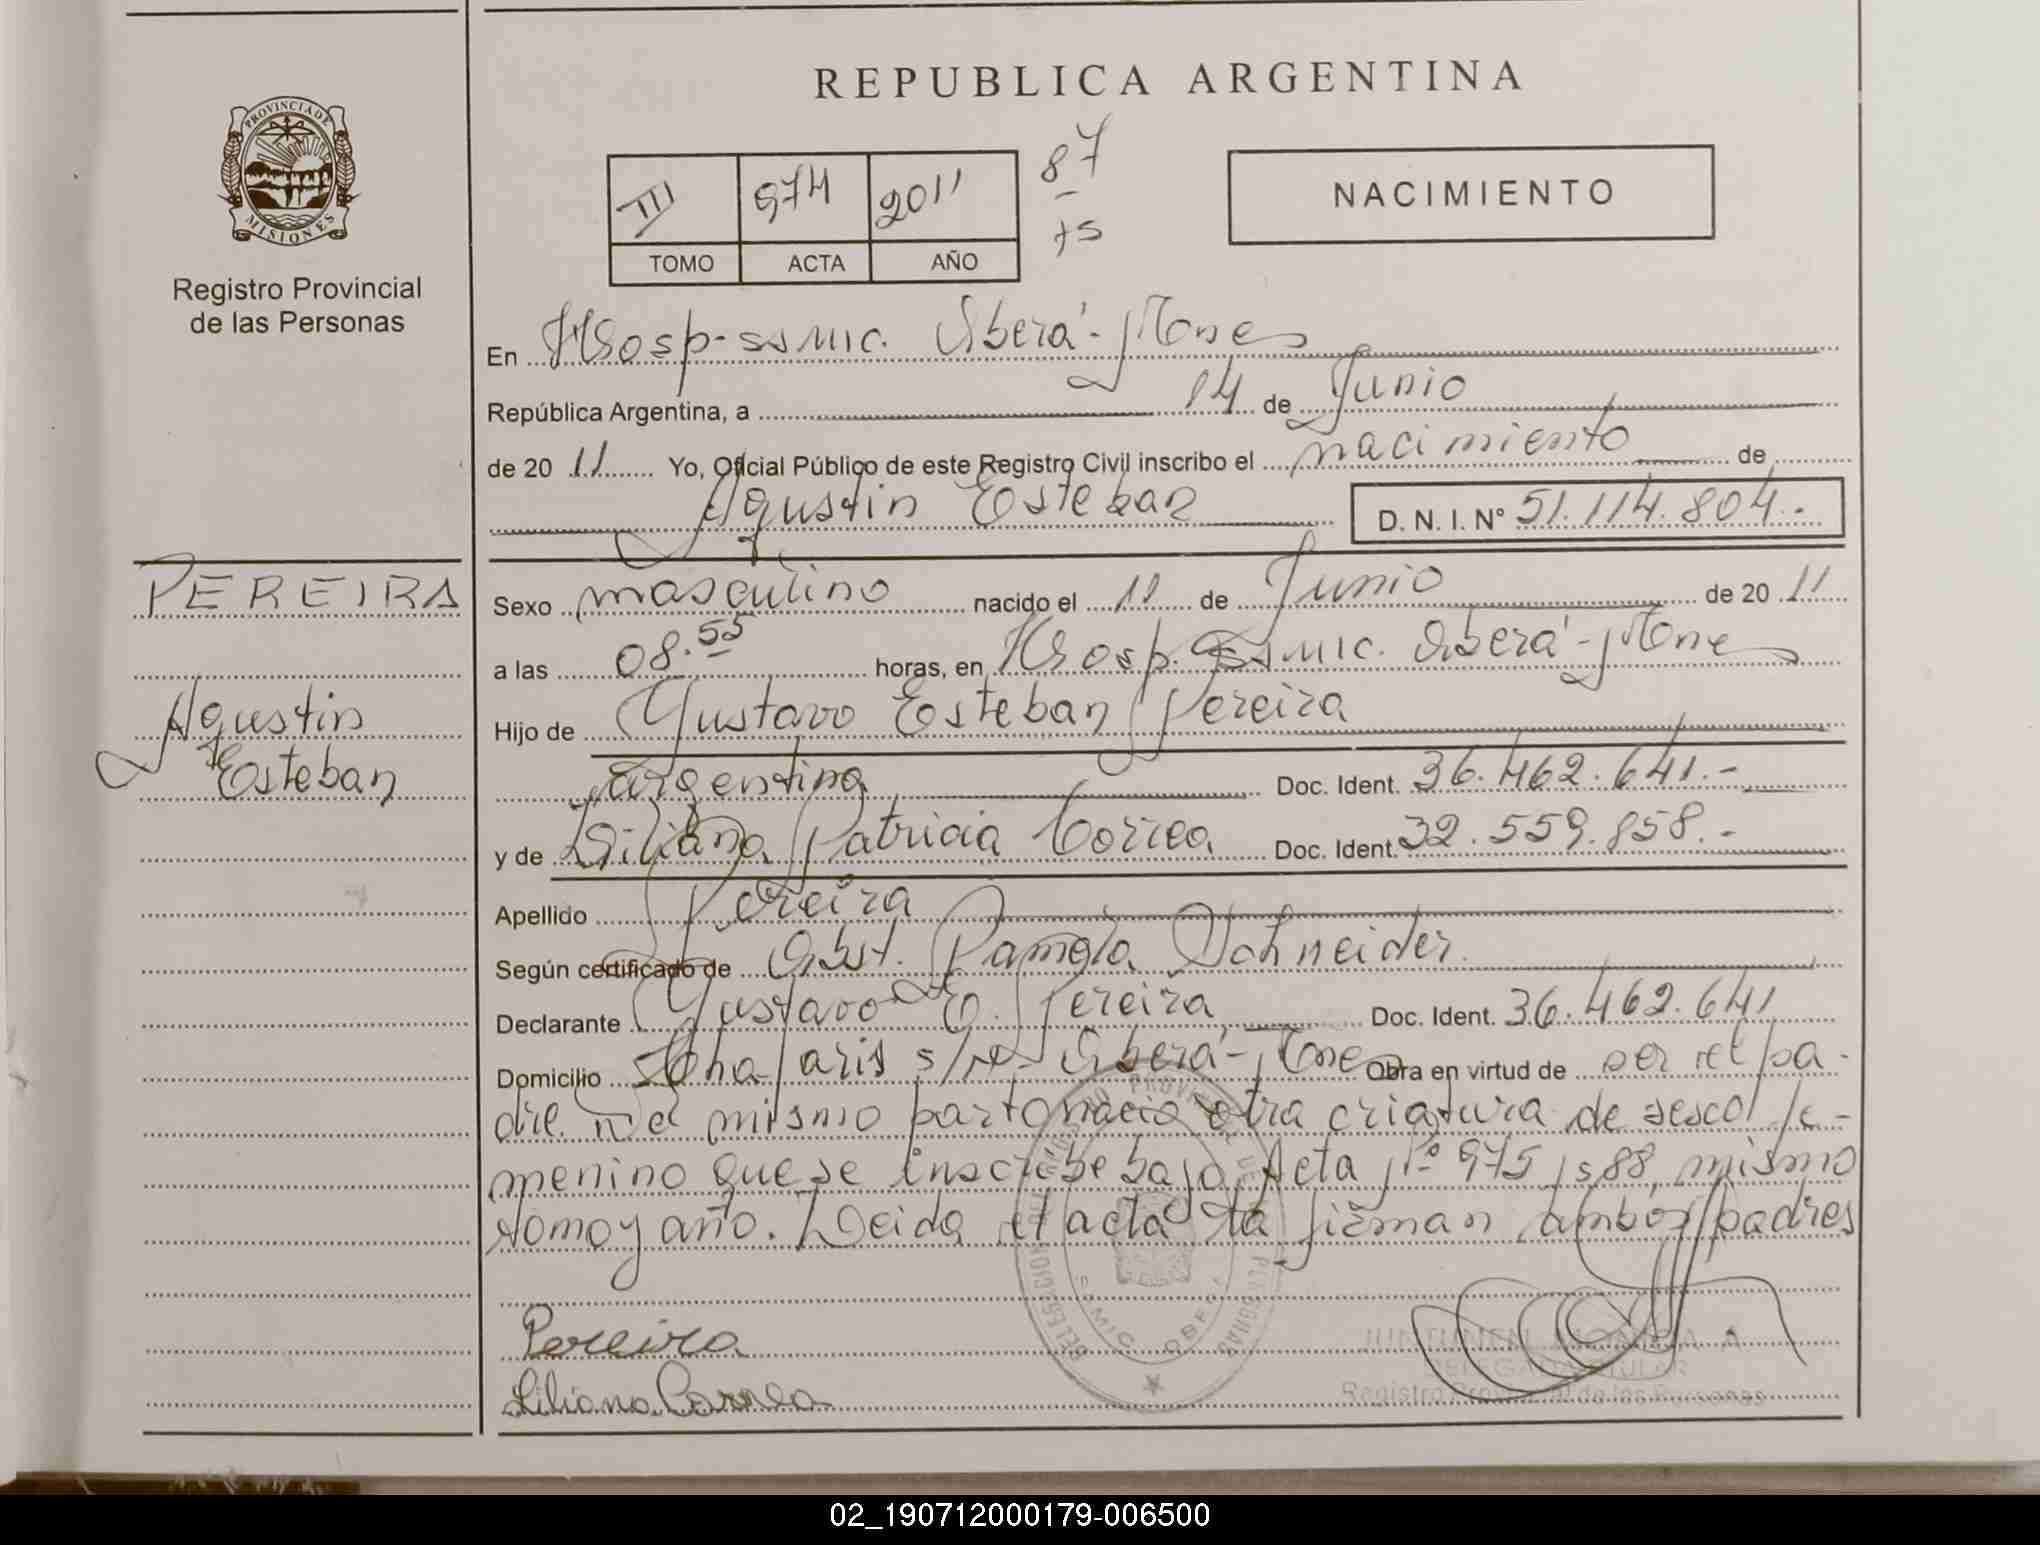 REPUBLICA ARGENTINA
PROVINCIA DE
MISIONES
Registro Provincial
de las Personas
III 974 2011
TOMO ACTA AÑO
87
NACIMIENTO
En Hosp-SSMIC. Oberá-Mones
República Argentina, a 14 de Junio
de 2011 Yo, Oficial Público de este Registro Civil inscribo el nacimiento de
Agustin Esteban D. N. I. N° 51.114.804.-
PEREIRA
Agustin
Esteban
Sexo masculino nacido el 11 de Junio de 2011
a las 08.55 horas, en Hosp. SSMIC. Oberá-Mones
Hijo de Gustavo Esteban Pereira
argentina Doc. Ident. 36.462.641.-
y de Liliana Patricia Correa Doc. Ident. 32.559.858.-
Apellido Pereira
Según certificado de Obst. Pamela Schneider
Declarante Gustavo E. Pereira Doc. Ident. 36.462.641
Domicilio s/nº Oberá-Mones Obra en virtud de ser el pa-
dre. Del mismo parto nació otra criatura de sexo fe-
menino que se inscribe bajo Acta Nº 975 fs 88, mismo
tomo y año. Leida el acta la firman ambos padres
Pereira
Liliana Correa
Registro Provincial de las Personas
02_190712000179-006500